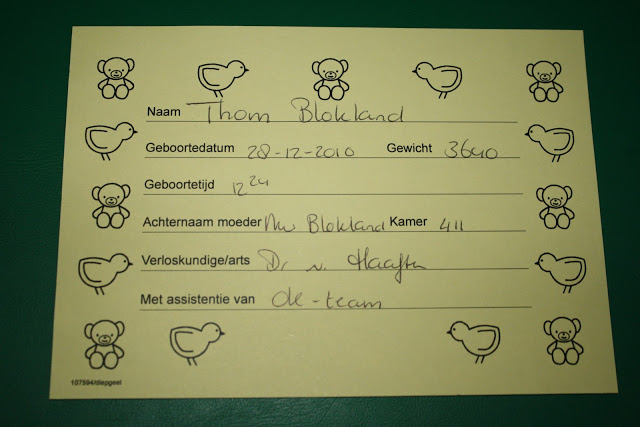 Naam Thom Blokland
Geboortedatum 28-12-2010 Gewicht 3640
Geboortetijd 12 24
Achternaam moeder Mw Blokland Kamer 411
Verloskundige/arts Dr v. Haaften
Met assistentie van ok-team
107594/diepgeel